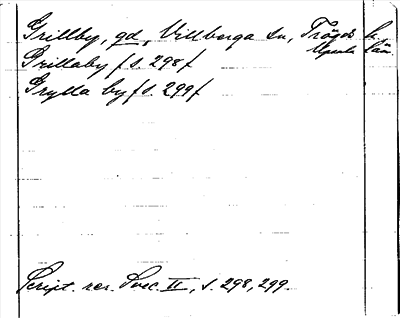 Grillby, gd, Villberga sn, Trögds h.
Upsala län
Grillaby (s. 298)
Grylla by (s. 299)
Script. rer. Svec. II, s. 298, 299.